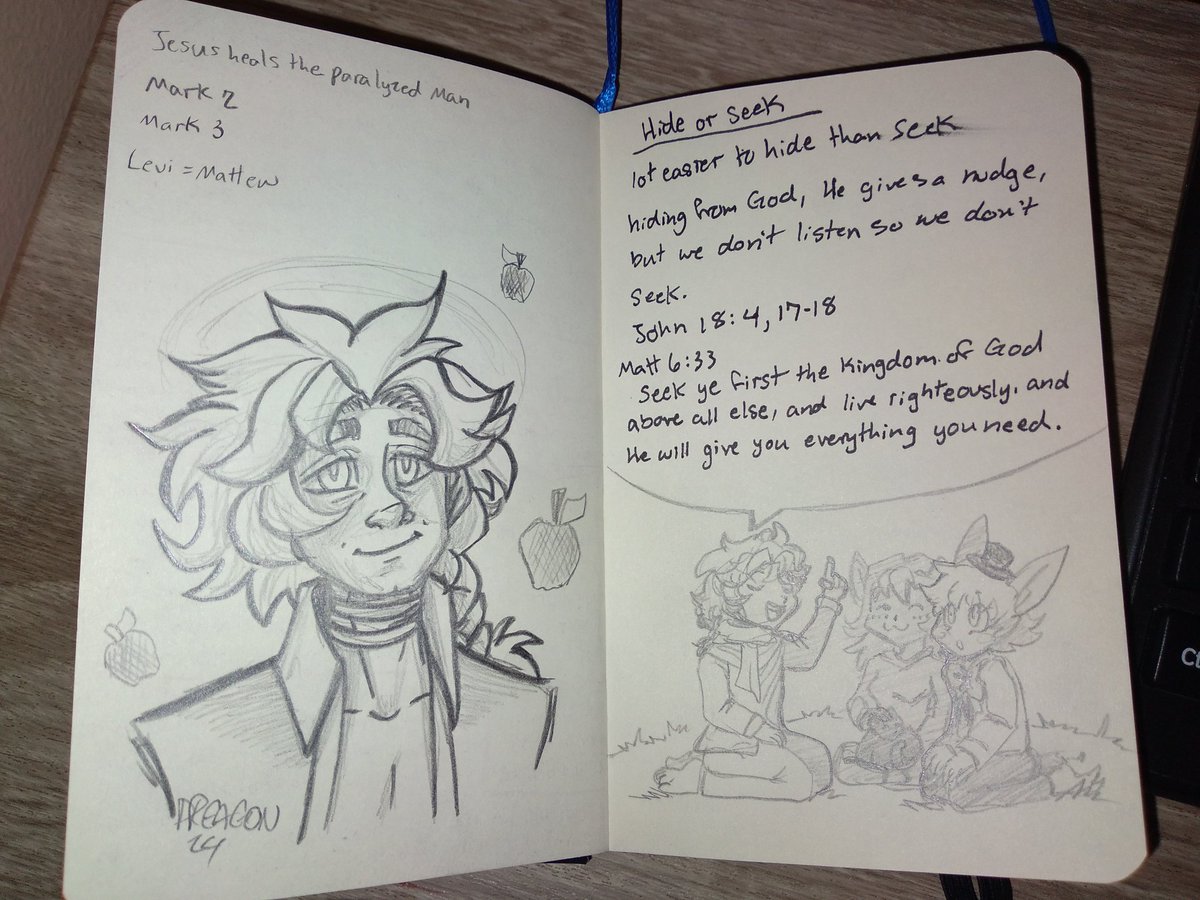 Jesus heals the paralyzed man
Mark 2
Mark 3
Levi = Mattew
24
Hide or seek
lot easier to hide than seek
hiding from God, He gives a nudge,
but we don't listen so we don't
seek.
John 18:4, 17-18
Matt 6:33
Seek ye first the Kingdom of God
above all else, and live righteously, and
He will give you everything you need.